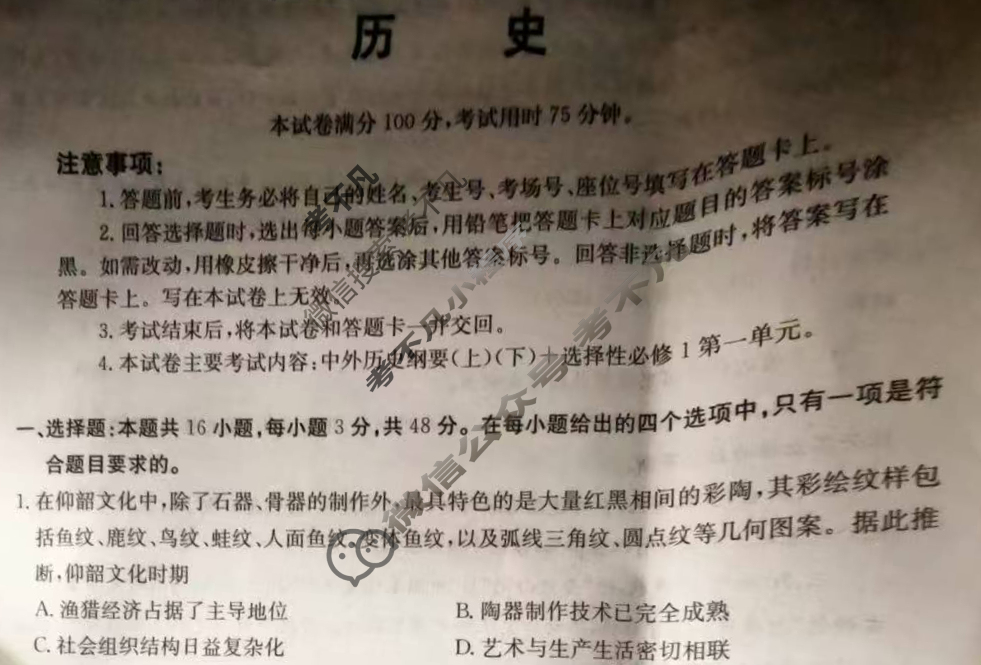 历 史
本试卷满分100分,考试用时75分钟。
注意事项:
1.答题前,考生务必将自己的姓名、考生号、考场号、座位号填写在答题卡上。
2.回答选择题时,选出每小题答案后,用铅笔把答题卡上对应题目的答案标号涂
黑。如需改动,用橡皮擦干净后,再选涂其他答案标号。回答非选择题时,将答案写在
答题卡上。写在本试卷上无效。
3.考试结束后,将本试卷和答题卡一并交回。
4.本试卷主要考试内容:中外历史纲要(上)(下)+选择性必修1第一单元。
一、选择题:本题共16小题,每小题3分,共48分。在每小题给出的四个选项中,只有一项是符
合题目要求的。
1.在仰韶文化中,除了石器、骨器的制作外,最具特色的是大量红黑相间的彩陶,其彩绘纹样包
括鱼纹、鹿纹、鸟纹、蛙纹、人面鱼纹、变体鱼纹,以及弧线三角纹、圆点纹等几何图案。据此推
断,仰韶文化时期
A.渔猎经济占据了主导地位
B.陶器制作技术已完全成熟
C.社会组织结构日益复杂化
D.艺术与生产生活密切相联
微信搜索
考不凡小程序
微信公众号考不凡